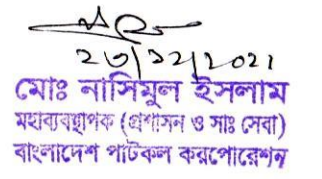 ২৩/১২/২০২১
মোঃ নাসিমুল ইসলাম
মহাব্যবস্থাপক (প্রশাসন ও সাঃ সেবা)
বাংলাদেশ পাটকল করপোরেশন